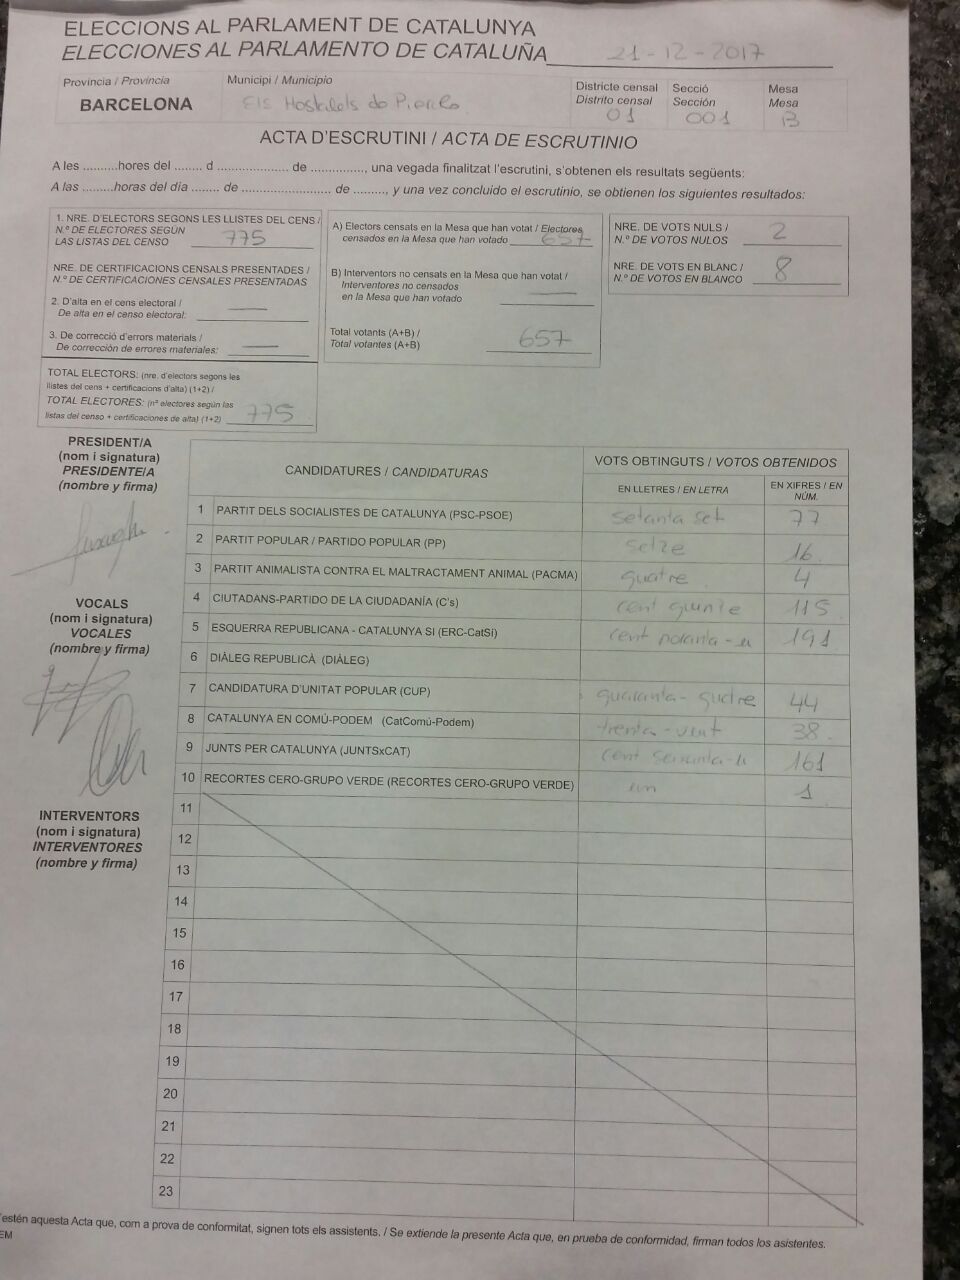 ELECCIONS AL PARLAMENT DE CATALUNYA
ELECCIONES AL PARLAMENTO DE CATALUÑA 21-12-2017
Província / Provincia
BARCELONA
Municipi / Municipio
Els Hostalets de Pierola
Districte censal
Distrito censal
01
Secció
Sección
001
Mesa
Mesa
B
ACTA D'ESCRUTINI / ACTA DE ESCRUTINIO
A les ..........hores del ........ d ..................... de ................, una vegada finalitzat l'escrutini, s'obtenen els resultats següents:
A las .........horas del día ........ de .......................... de .........., y una vez concluido el escrutinio, se obtienen los siguientes resultados:
1. NRE. D'ELECTORS SEGONS LES LLISTES DEL CENS /
N.º DE ELECTORES SEGÚN
LAS LISTAS DEL CENSO 775
NRE. DE CERTIFICACIONS CENSALS PRESENTADES /
N.º DE CERTIFICACIONES CENSALES PRESENTADAS
2. D'alta en el cens electoral /
De alta en el censo electoral: —
3. De correcció d'errors materials /
De corrección de errores materiales: —
TOTAL ELECTORS: (nre. d'electors segons les
llistes del cens + certificacions d'alta) (1+2) /
TOTAL ELECTORES: (nº electores según las
listas del censo + certificaciones de alta) (1+2) 775
A) Electors censats en la Mesa que han votat / Electores
censados en la Mesa que han votado 657
B) Interventors no censats en la Mesa que han votat /
Interventores no censados
en la Mesa que han votado —
Total votants (A+B) /
Total votantes (A+B) 657
NRE. DE VOTS NULS /
N.º DE VOTOS NULOS 2
NRE. DE VOTS EN BLANC /
N.º DE VOTOS EN BLANCO 8
PRESIDENT/A
(nom i signatura)
PRESIDENTE/A
(nombre y firma)
VOCALS
(nom i signatura)
VOCALES
(nombre y firma)
INTERVENTORS
(nom i signatura)
INTERVENTORES
(nombre y firma)
CANDIDATURES / CANDIDATURAS
VOTS OBTINGUTS / VOTOS OBTENIDOS
EN LLETRES / EN LETRA
EN XIFRES / EN NÚM.
1 PARTIT DELS SOCIALISTES DE CATALUNYA (PSC-PSOE) setanta set 77
2 PARTIT POPULAR / PARTIDO POPULAR (PP) setze 16
3 PARTIT ANIMALISTA CONTRA EL MALTRACTAMENT ANIMAL (PACMA) quatre 4
4 CIUTADANS-PARTIDO DE LA CIUDADANÍA (C's) cent quinze 115
5 ESQUERRA REPUBLICANA - CATALUNYA SI (ERC-CatSí) cent noranta-u 191
6 DIÀLEG REPUBLICÀ (DIÀLEG)
7 CANDIDATURA D'UNITAT POPULAR (CUP) quaranta-quatre 44
8 CATALUNYA EN COMÚ-PODEM (CatComú-Podem) trenta-vuit 38
9 JUNTS PER CATALUNYA (JUNTSxCAT) cent seixanta-u 161
10 RECORTES CERO-GRUPO VERDE (RECORTES CERO-GRUPO VERDE) un 1
11
12
13
14
15
16
17
18
19
20
21
22
23
estén aquesta Acta que, com a prova de conformitat, signen tots els assistents. / Se extiende la presente Acta que, en prueba de conformidad, firman todos los asistentes.
EM